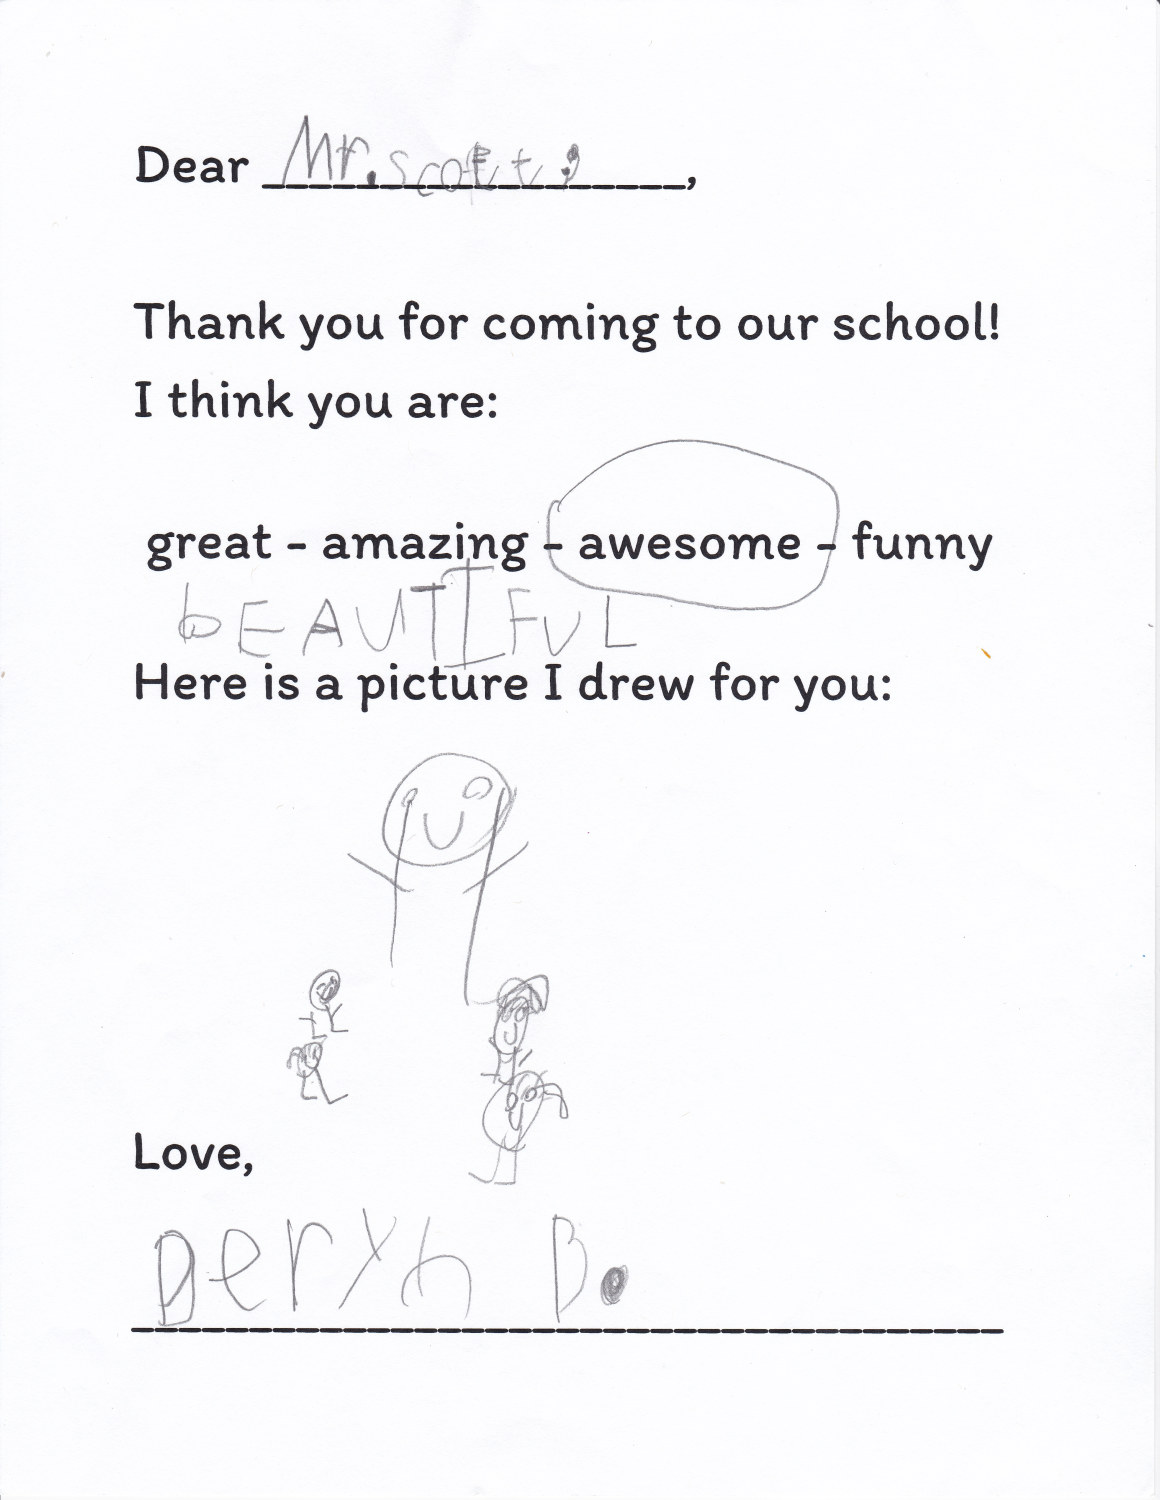 Dear Mr. Scott,,
Thank you for coming to our school!
I think you are:
great - amazing - awesome - funny
bEAUTIFUL
Here is a picture I drew for you:
Love,
Deryn B.